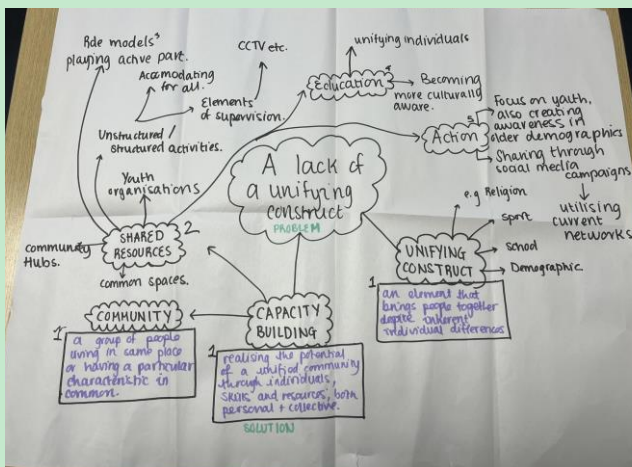 Role models³
playing active part.
Accomodating
for all.
CCTV etc.
Elements
of supervision.
Unstructured /
structured activities.
Youth
organisations
SHARED
RESOURCES
2
community
Hubs.
common spaces.
unifying individuals
Education
4
Becoming
more culturally
aware.
Action
5
Focus on youth,
also creating
awareness in
older demographics
Sharing through
social media
campaigns
utilising
current
networks
A lack of
a unifying
construct
PROBLEM
e.g Religion
sport
school
Demographic
UNIFYING
CONSTRUCT
1
an element that
brings people together
despite inherent
individual differences
COMMUNITY
1
a group of people
living in same place
or having a particular
characteristic in
common.
CAPACITY
BUILDING
1
realising the potential
of a unified community
through individuals,
skills and resources, both
personal + collective.
SOLUTION